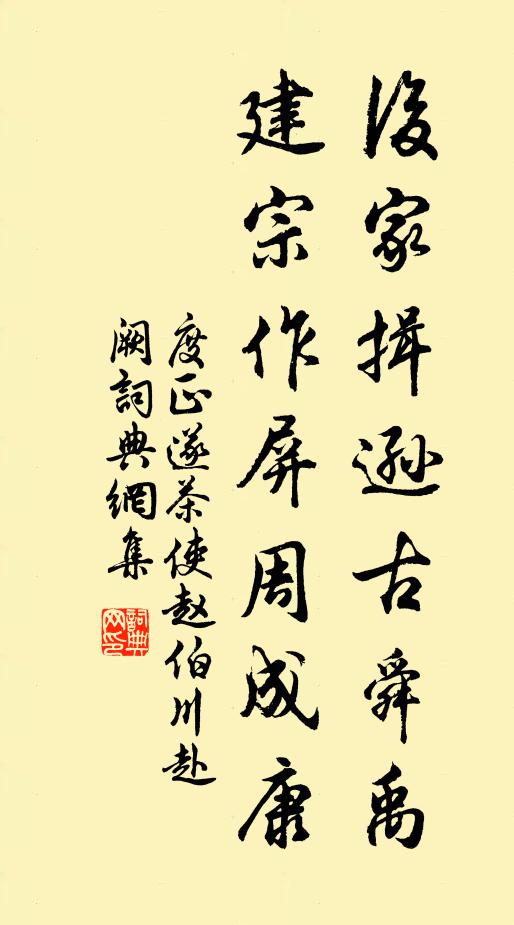 後家揖遜古舜禹
建宗作屏周成康
度正送茶使赵伯川赴
阙詞典網集
詞典